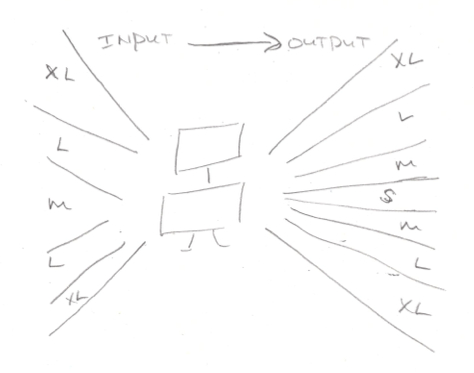 INPUT → OUTPUT
XL
L
M
L
XL
XL
L
M
S
M
L
XL